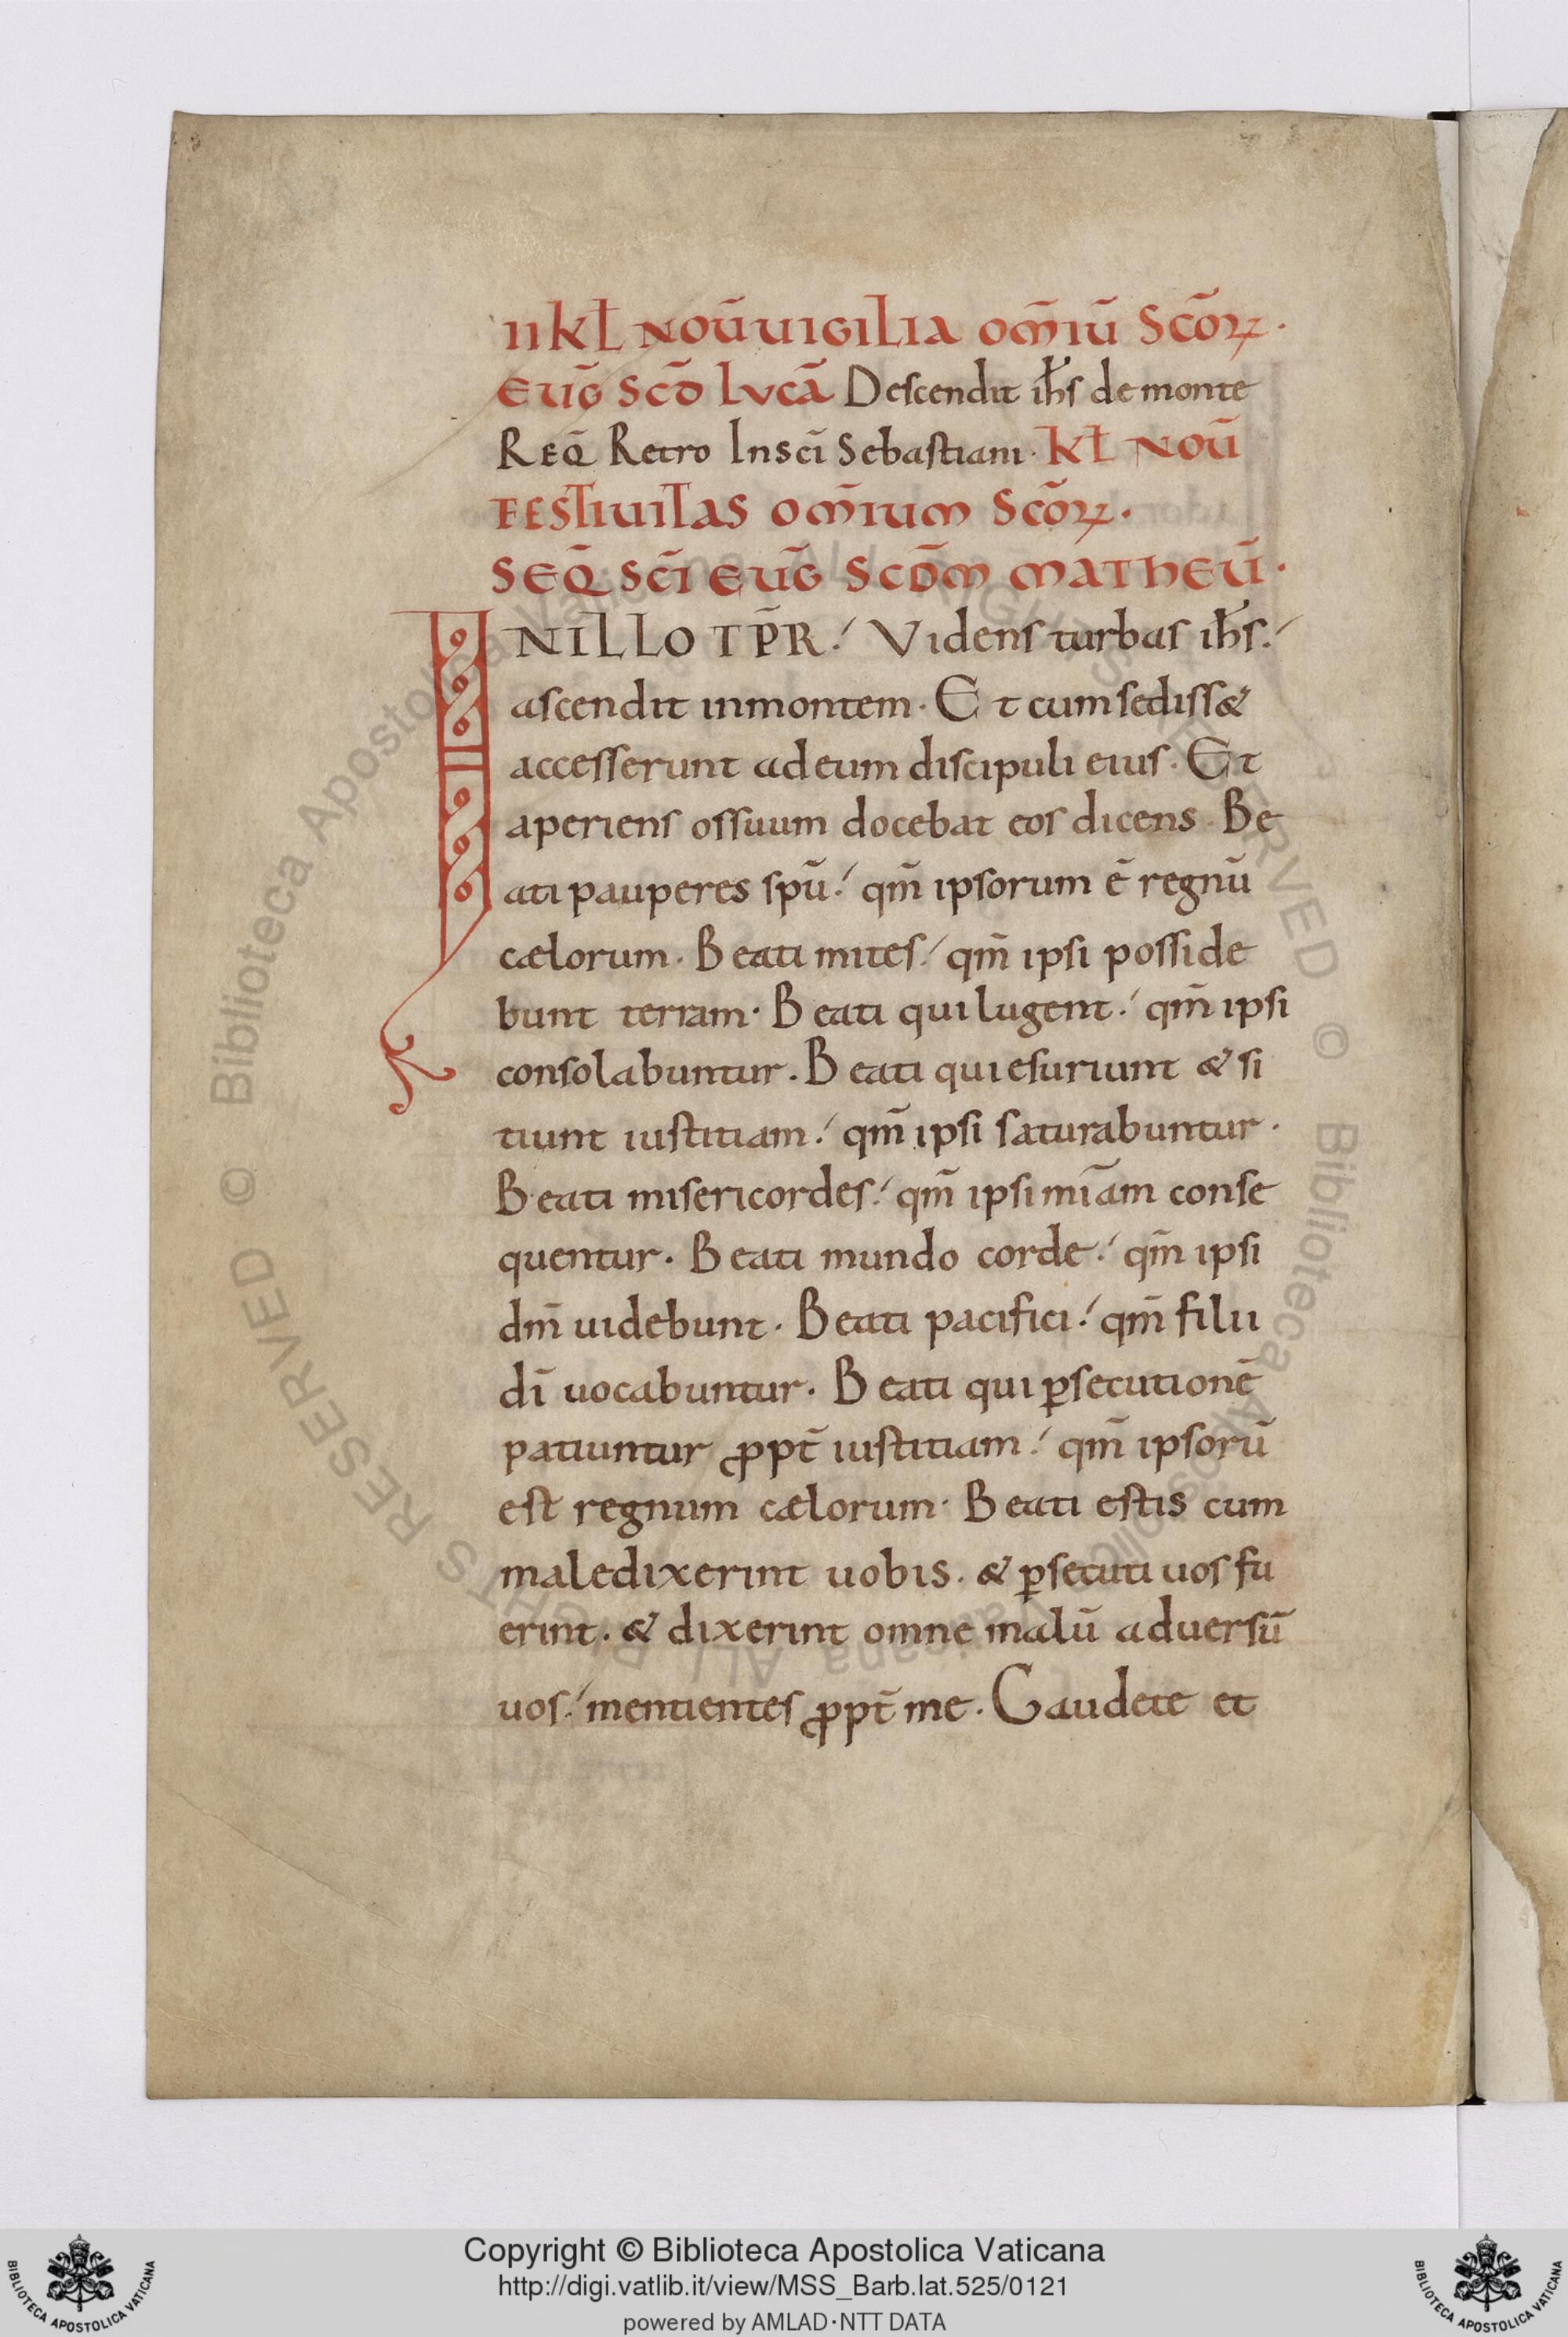 II Kƚ NOŪ UIGILIA OM̄IŪ SCŌꝜ·
EUḠ SCD̄ LVCĀ Descendit ih̄s de monte
REQ̄ Retro In sc̄i Sebastiani· Kƚ NOŪ
FESTIUITAS OM̄IUM SCŌꝜ·
SEQ̄ SC̄I EUḠ SCD̄M MATHEŪ·
INILLO TP̄R· Videns turbas ih̄s·
ascendit inmontem· Et cum sedissæ&
accesserunt ad eum discipuli eius· Et
aperiens os suum docebat eos dicens· Be
ati pauperes spū· qm̄ ipsorum ē regnū
cælorum· Beati mites· qm̄ ipsi posside
bunt terram· Beati qui lugent· qm̄ ipsi
consolabuntur· Beati qui esuriunt & si
tiunt iustitiam· qm̄ ipsi saturabuntur·
Beati misericordes· qm̄ ipsi mīam conse
quentur· Beati mundo corde· qm̄ ipsi
dm̄ uidebunt· Beati pacifici· qm̄ filii
dī uocabuntur· Beati qui ꝑsecutionē
patiuntur ꝓpt̄ iustitiam· qm̄ ipsorū
est regnum cælorum· Beati estis cum
maledixerint uobis· & ꝑsecuti uos fu
erint· & dixerint omne malū aduersū
uos· mentientes ꝓpt̄ me· Gaudete et
© Biblioteca Apostolica Vaticana ALL RIGHTS RESERVED © Biblioteca Apostolica Vaticana ALL RIGHTS RESERVED
Copyright © Biblioteca Apostolica Vaticana
http://digi.vatlib.it/view/MSS_Barb.lat.525/0121
powered by AMLAD·NTT DATA
BIBLIOTECA APOSTOLICA VATICANA
BIBLIOTECA APOSTOLICA VATICANA